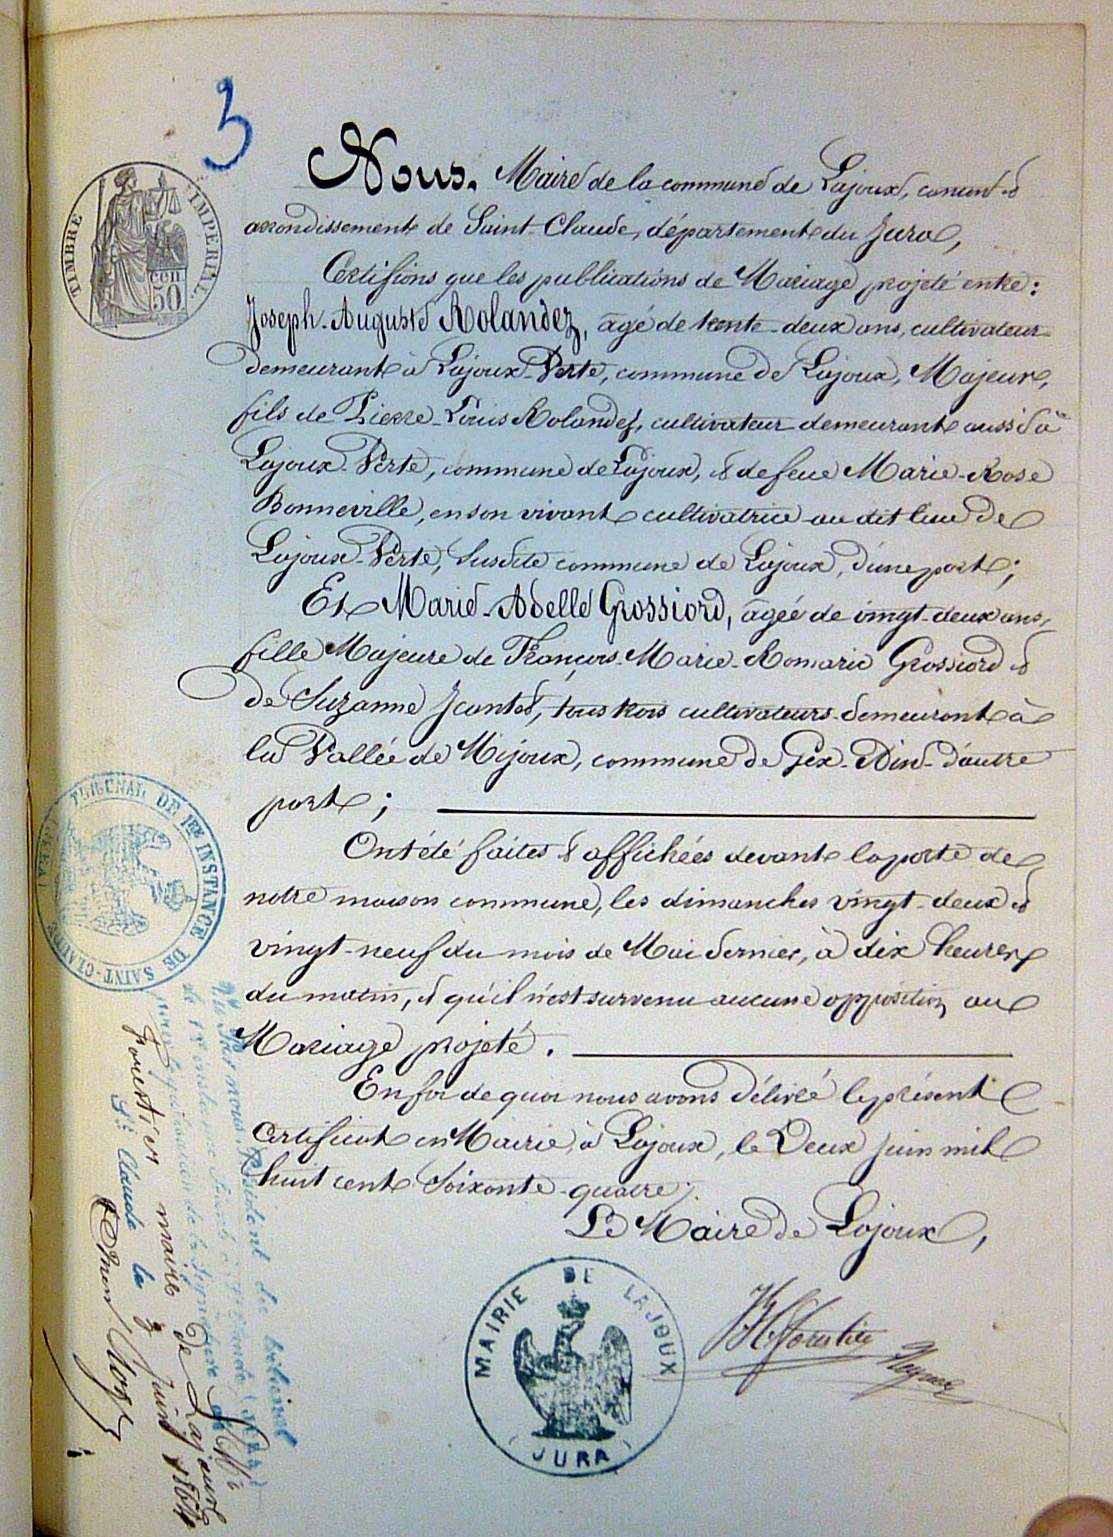 3
TIMBRE IMPERIAL
50 cen
Nous, Maire de la commune de Lajoux, canton &
arrondissement de Saint-Claude, département du Jura,
Certifions que les publications de Mariage projeté entre:
Joseph-Auguste Rolandez, âgé de trente-deux ans, cultivateur
demeurant à Lajoux-Verte, commune de Lajoux, Majeur,
fils de Pierre-Louis Rolandez, cultivateur demeurant aussi à
Lajoux-Verte, commune de Lajoux, & de feue Marie-Rose
Bonneville, en son vivant cultivatrice au dit lieu de
Lajoux-Verte, susdite commune de Lajoux, d'une part;
Et Marie-Adelle Grossiord, âgée de vingt-deux ans,
fille Majeure de François-Marie-Romaric Grossiord &
de Suzanne Jantet, tous trois cultivateurs demeurant à
la Vallée de Mijoux, commune de Gex-Ain-d'autre
part;
Ont été faites & affichées devant la porte de
notre maison commune, les dimanches vingt-deux &
vingt-neuf du mois de Mai dernier, à dix heures
du matin, & qu'il n'est survenu aucune opposition au
Mariage projeté.
En foi de quoi nous avons délivré le présent
Certificat en Mairie à Lajoux, le Deux juin mil
huit cent soixante-quatre;
Le Maire de Lajoux,
MAIRIE DE LAJOUX
(JURA)
TRIBUNAL DE 1ERE INSTANCE DE SAINT-CLAUDE
Vu Par nous, Président du tribunal
de 1re instance
pour légalisation de la signature de
forestier maire de Lajoux
St Claude le 3 juin 1864